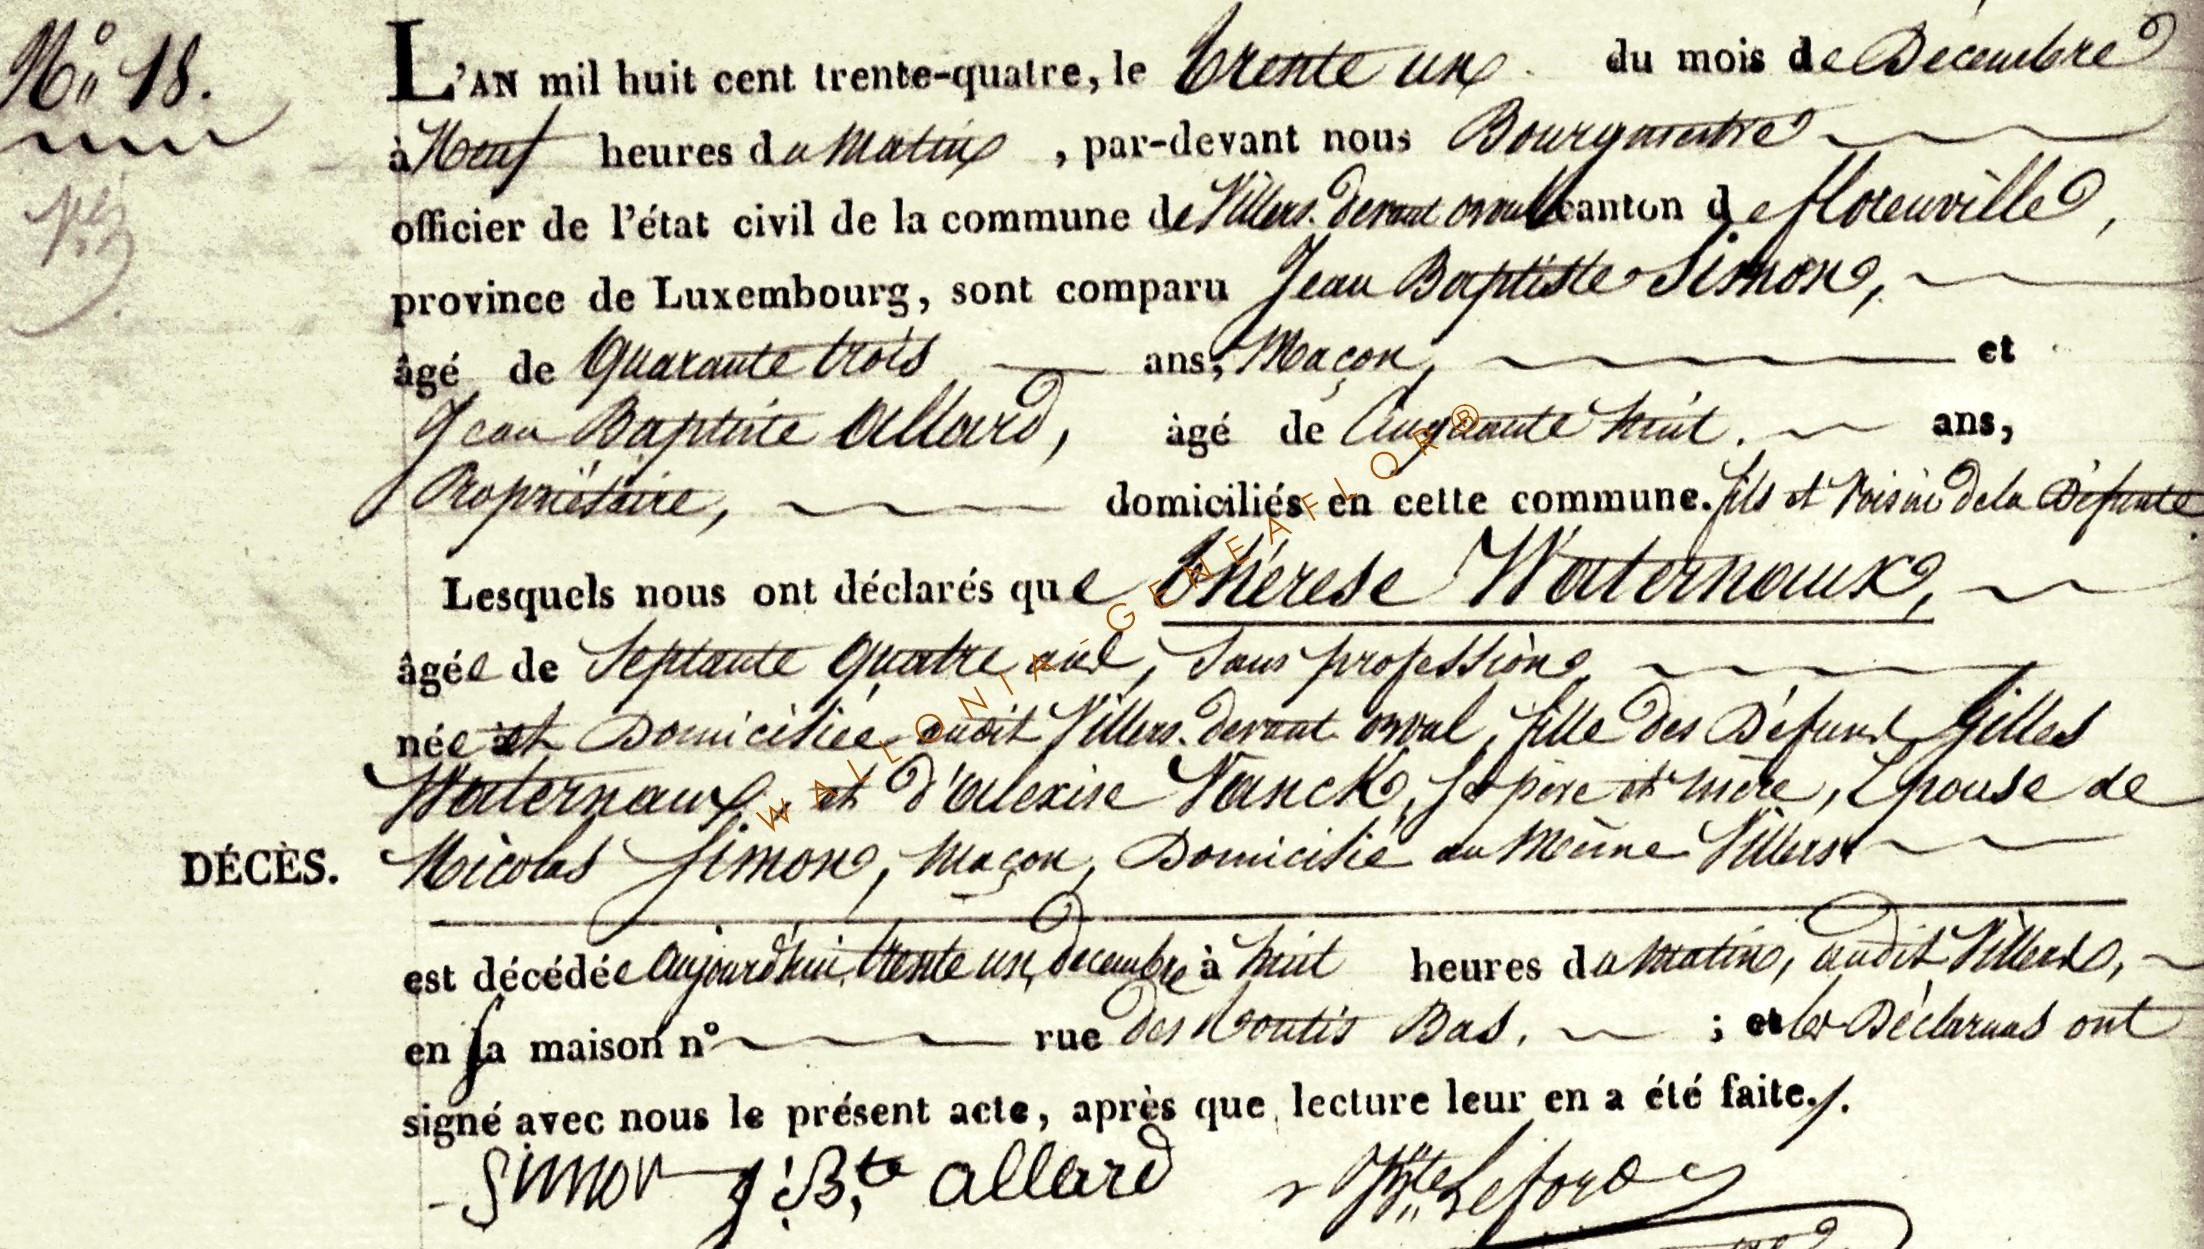 No 18.
L'AN mil huit cent trente-quatre, le trente un du mois de Décembre
à Neuf heures du Matin, par-devant nous Bourgmestre
officier de l'état civil de la commune de Villers devant orval canton de florenville,
province de Luxembourg, sont comparu Jean Baptiste Simon,
âgé de Quarante trois ans, Maçon, et
Jean Baptiste Allard, âgé de Cinquante huit. ans,
Propriétaire, domiciliés en cette commune. fils et Voisin de la Défunte.
Lesquels nous ont déclarés que thérese Waternaux,
âgée de Septante quatre ans, Sans profession,
née et Domiciliée audit Villers. devant orval, fille des Défunts Gilles
Waternaux et d'alexise Vanck, ses père et mère, Epouse de
DÉCÈS.
Nicolas Simon, Maçon, Domicilié au Même Villers
est décédée aujourd'hui trente un decembre à huit heures du matin, audit Villers,
en sa maison n° rue des Bas. ; et les Déclarans ont
signé avec nous le présent acte, après que lecture leur en a été faite./.
Simon J. Bte allard
WALLONIA-GENEAFLOR®